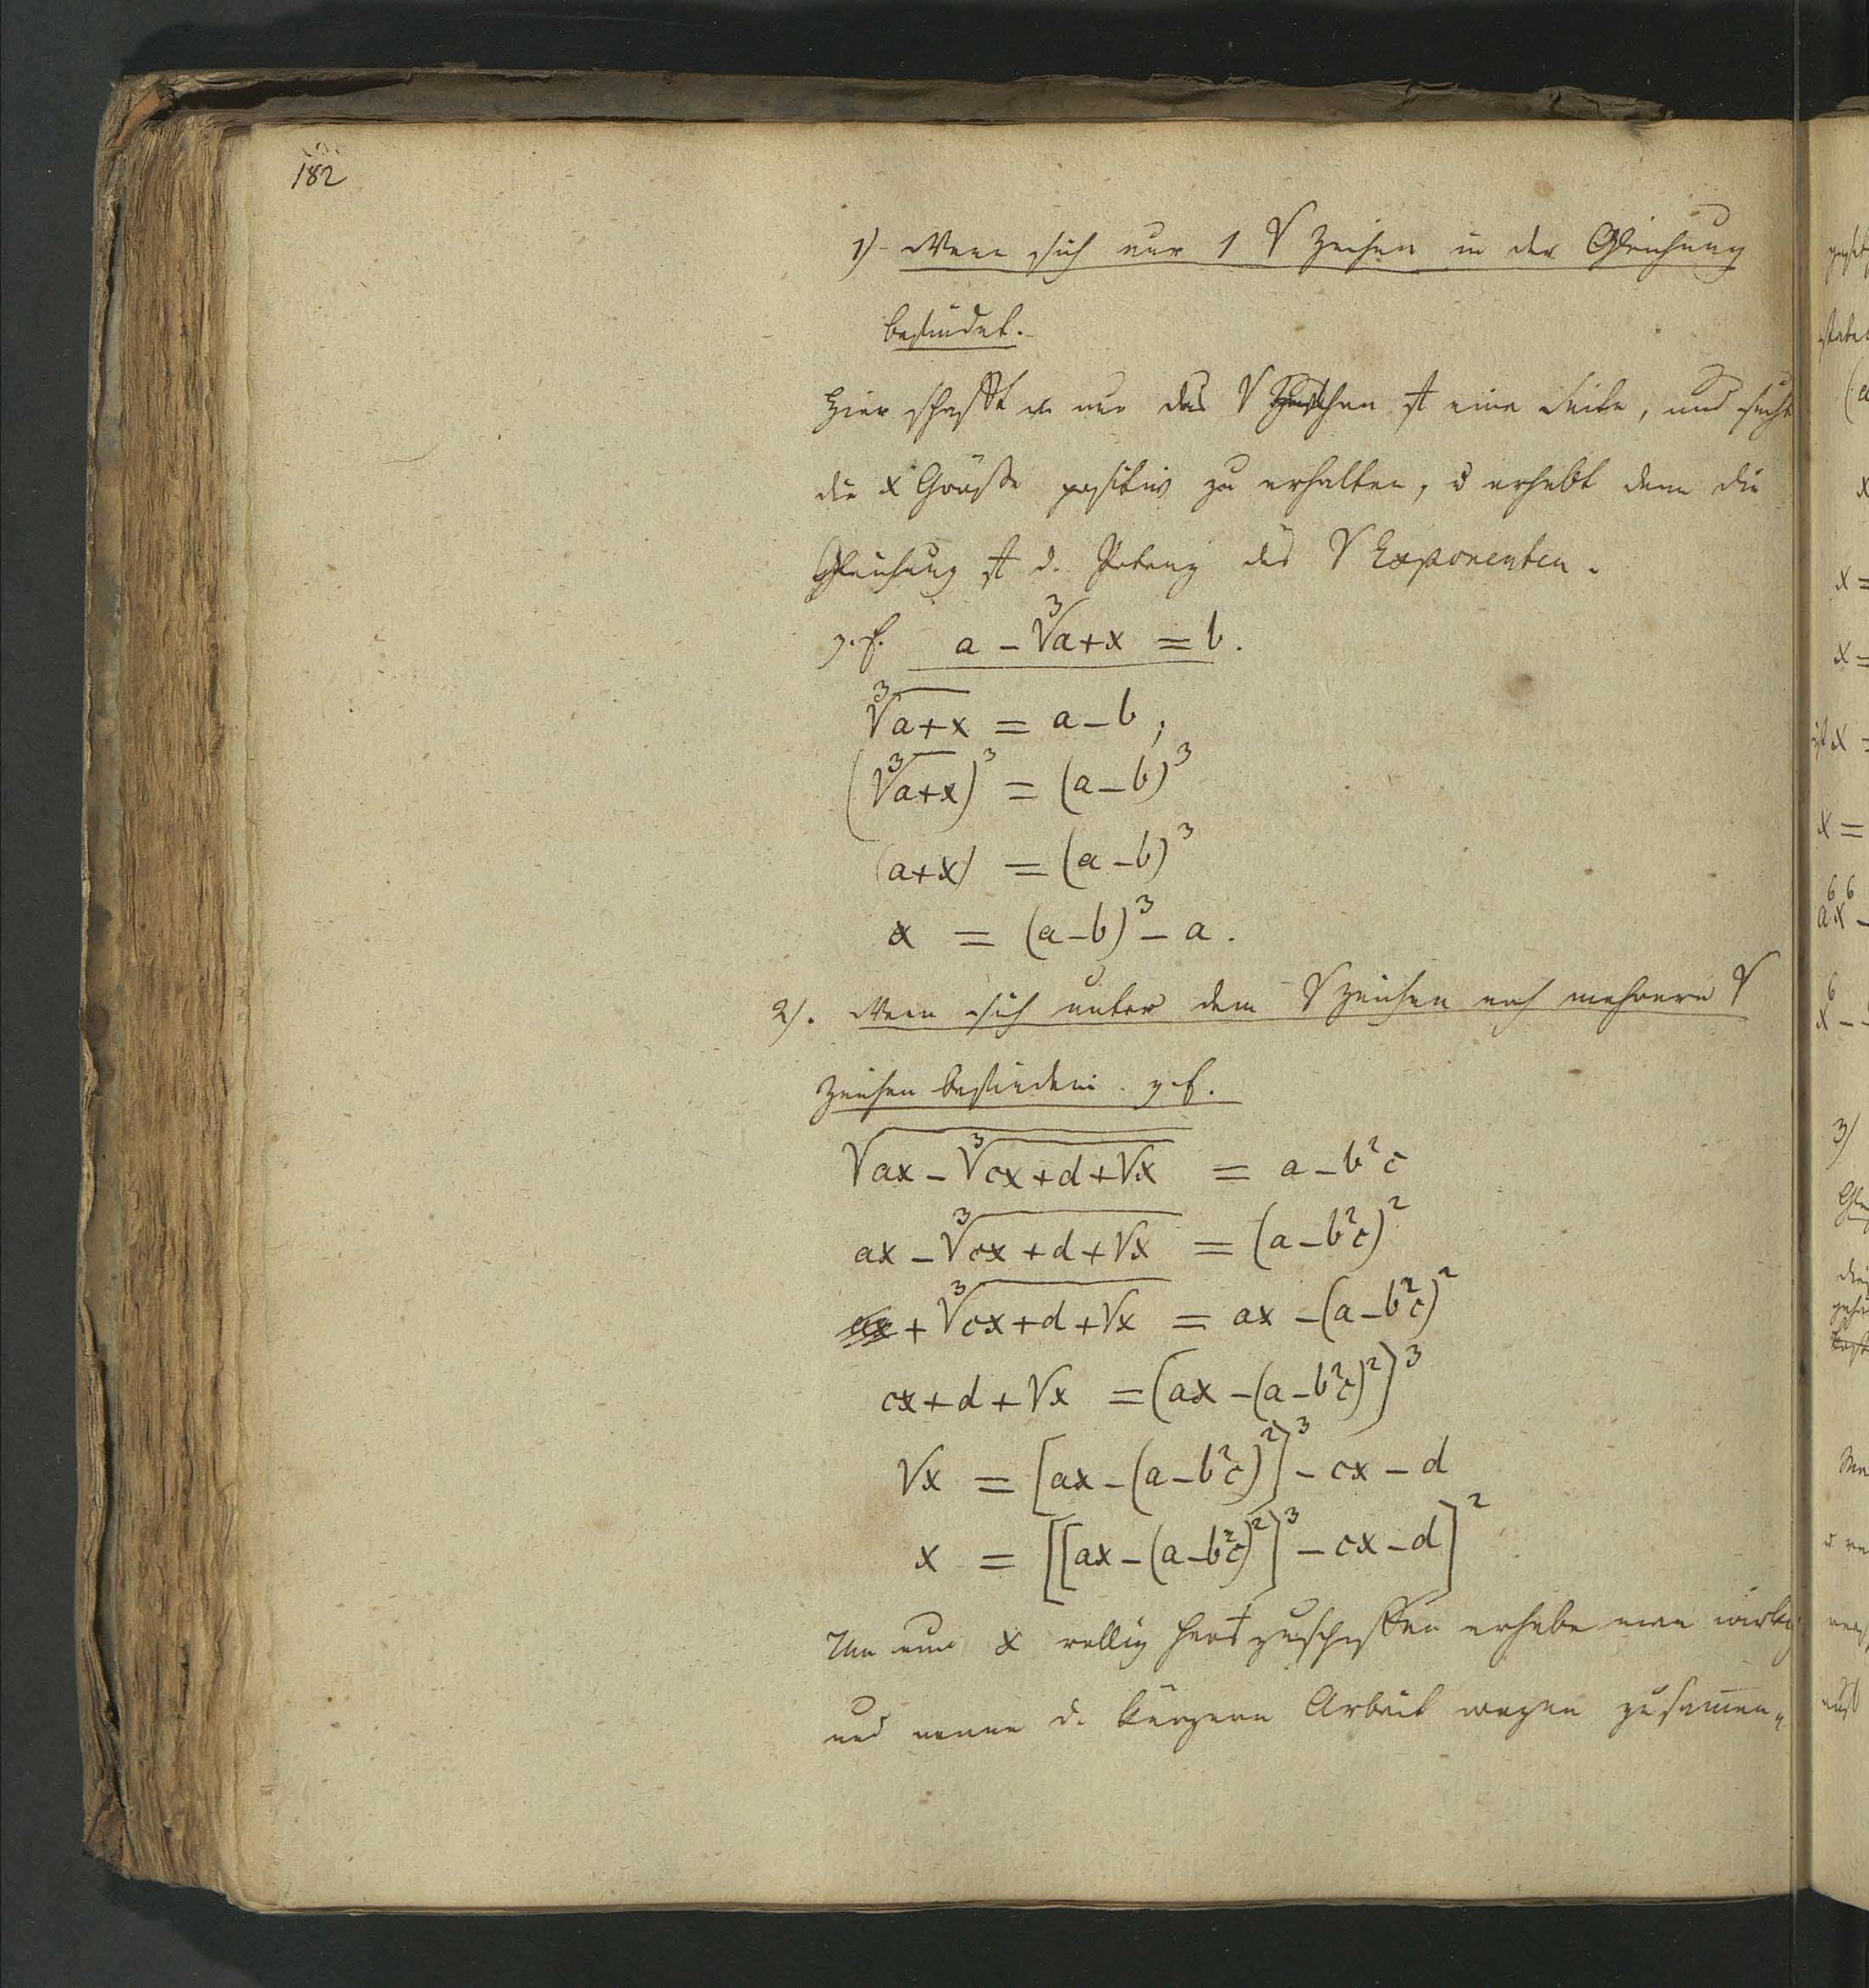 182
1) Wenn sich nur 1 √ Zeichen in der Gleichung
befindet.
Hier schafft m nur das √ Zeichen auf eine Seite, und sucht
die x Größe positiv zu erhalten, u erhebt dann die
Gleichung auf d. Potenz des √ Exponenten.
z. E. a - ∛a+x = b.
∛(a+x) = a - b ;
(∛(a+x))³ = (a-b)³
(a+x) = (a-b)³
x = (a-b)³ - a.
2). Wenn sich unter dem √ Zeichen noch mehrere √
Zeichen befinden. z. E.
√(ax - ∛(cx+d+√x)) = a - b²c
ax - ∛(cx+d+√x) = (a-b²c)²
+ ∛(cx+d+√x) = ax - (a-b²c)²
cx+d+√x = (ax - (a-b²c)²)³
√x = [ax - (a-b²c)²]³ - cx - d
x = [[ax - (a-b²c)²]³ - cx - d]²
Um nun x völlig zuschaffen erhebe man
und nenne d. kürzern Arbeit wegen zusamen„
3)